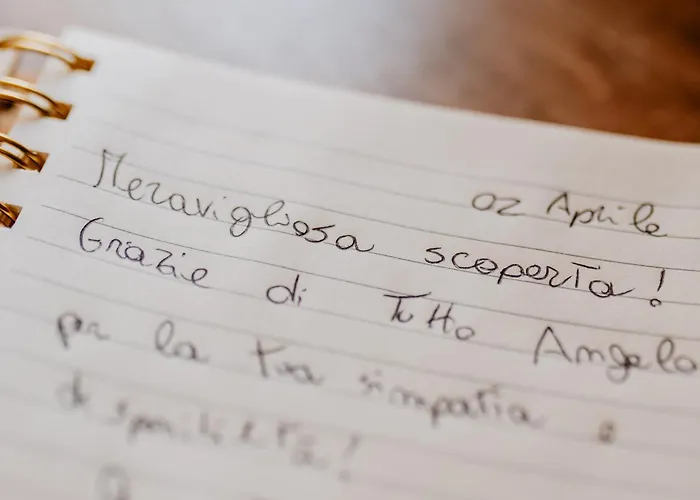 02 Aprile
Meravigliosa scoperta!
Grazie di Tutto Angelo
per la tua simpatia e
disponibilità!